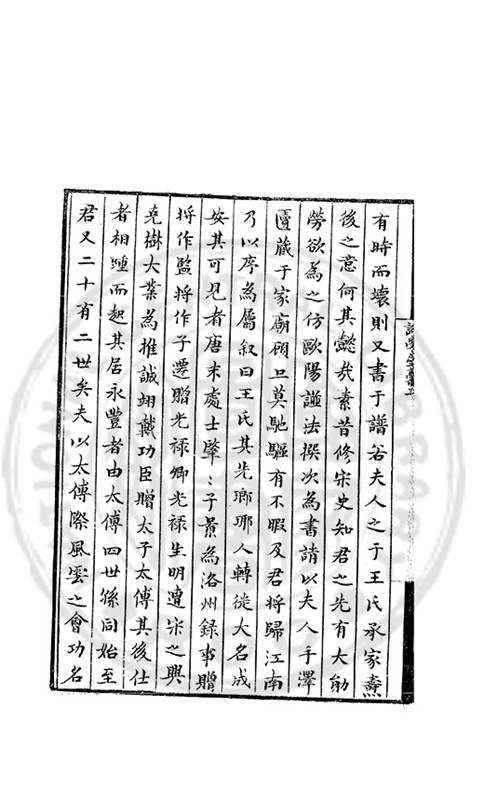 有時而壞則又書于譜若夫人之于王氏承家燾
後之意何其懿㢤素昔修宋史知君之先有大勛
勞欲為之仿歐陽譜法撰次為書請以夫人手澤
匵藏于家廟顧旦莫馳驅有不暇及君將歸江南
乃以序為屬叙曰王氏其先瑯琊人轉徙大名成
安其可見者唐末處士肇〻子景為洛州錄事贈
將作監將作子遷贈光祿卿光祿生明遭宋之興
克樹大業為推誠翊戴功臣贈太子太傅其後仕
者相踵而起其居永豐者由太傅四世孫同始至
君又二十有二世矣夫以太傅際風雲之會功名